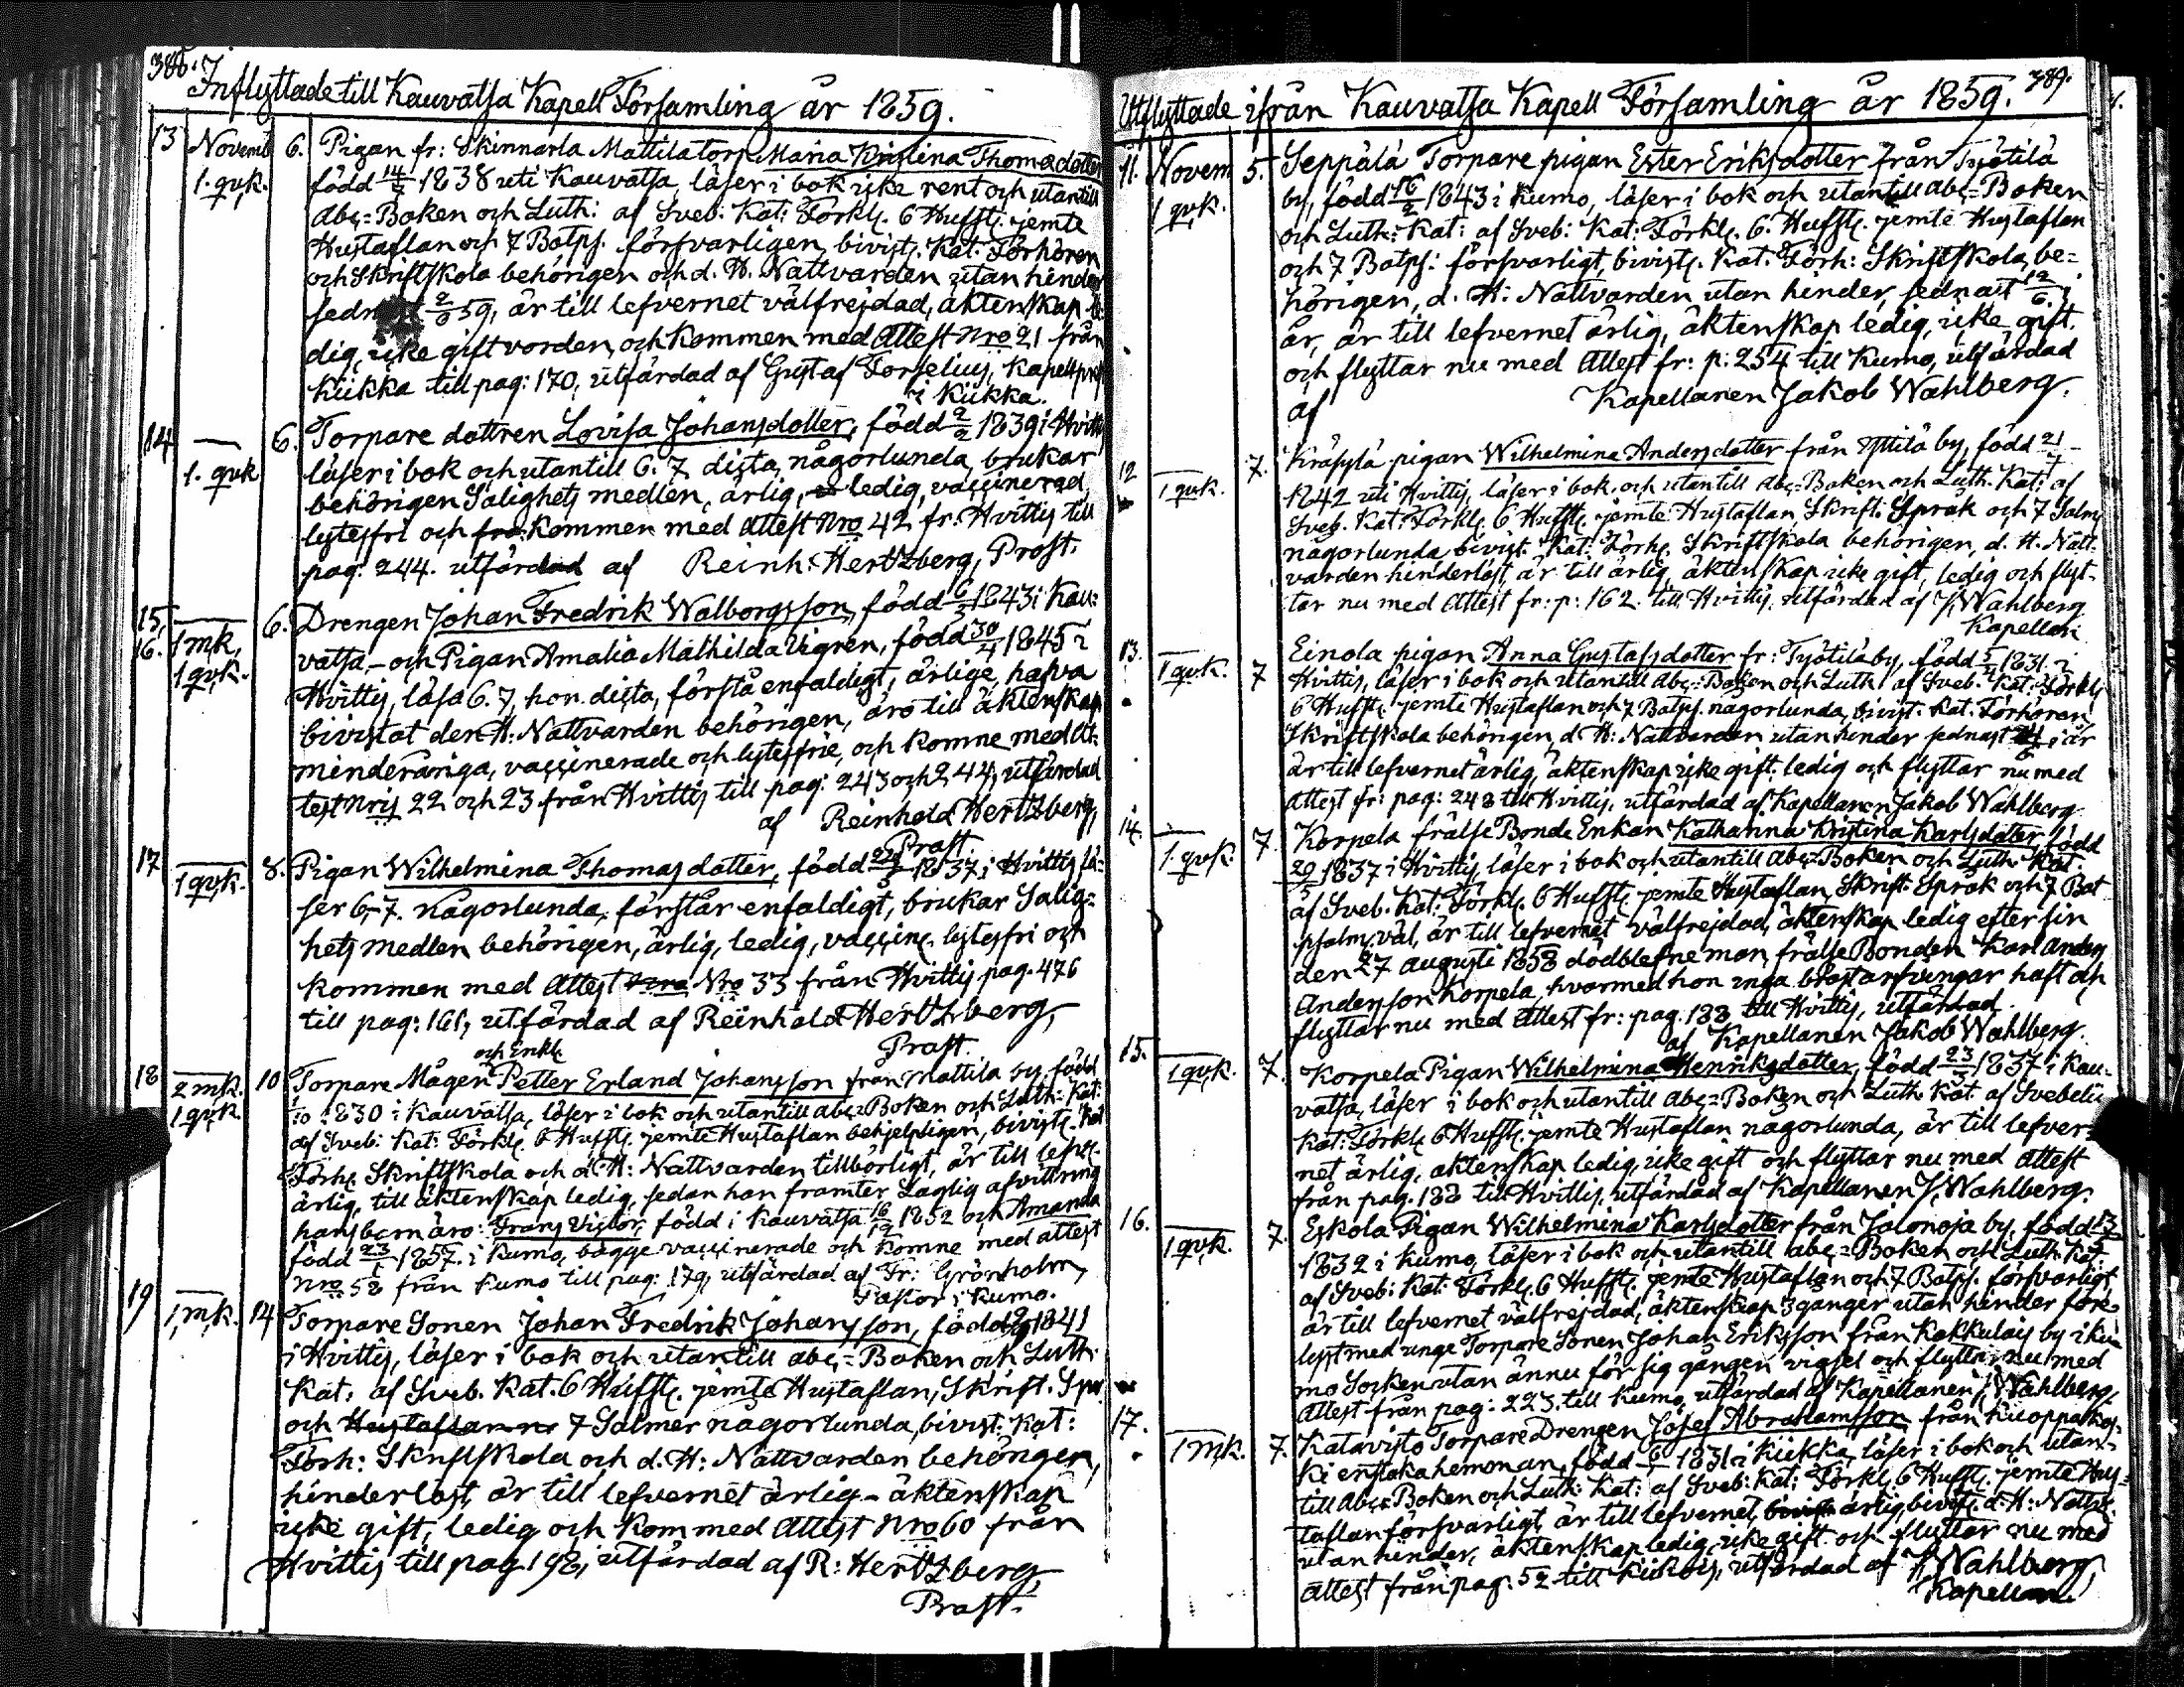 388.
Inflyttade till Kauvatsa Kapell Församling år 1859.
13 Novemb 6. Pigan fr: Skinnarla Mattila torp Maria Kristina Thomadotter
1. qvk. född 14/ 1838 uti Kauvatsa, läser i bok icke rent och utantill
Abc=Boken och Luth: af Sveb: Kat: Förkl. 6 Hufst: jemte
Hustaflan och 7 Botps. försvarligen, bivist. Kat: Förhören
och Skriftskola behörigen och d. H. Nattvarden utan hinder
59, är till lefvernet välfrejdad, äktenskap le-
dig, icke gift vorden, och kommen med Attest Nro 21 från
Kiikka till pag: 170, utfärdad af Gustaf Forselius, Kapell
i Kiikka.
14 6. Torpare dottren Lovisa Johansdotter, född 2/2 1839 i Hvittis
1. qvk läser i bok och utantill 6. 7 dista, någorlunda, brukar
behörigen Salighets medlen, ärlig, ledig, vaccinerad
lytesfri och kommen med Attest Nro 42 fr. Hvittis till
pag. 244. utfärdad af Reinh: Hertzberg, Prost.
15, 6. Drengen Johan Fredrik Walborgsson, född 1843 i Kau-
16. 1 mk, vatsa - och Pigan Amalia Mathilda Vigren, född 30/4 1845 i
1 qvk. Hvittis, läsa 6. 7, hon dista, förstå enfaldigt, ärlige, hafva
bivistat den H: Nattvarden behörigen, äro till äktenskap
minderåriga, vaccinerade och lytesfrie, och komne med At-
test Nris 22 och 23 från Hvittis till pag: 243 och 244, utfärdad
af Reinhold Hertzberg,
Prost.
17 8. Pigan Wilhelmina Thomasdotter, född 1837 i Hvittis lä-
1 qvk. ser 6-7. någorlunda, förstår enfaldigt, brukar Salig-
hets medlen behörigen, ärlig, ledig, vaccine. lytesfri och
kommen med Attest Nro 33 från Hvittis pag. 476
till pag: 161, utfärdad af Reinhold Hertzberg,
Prost.
och Enkl.
18 2 mk. 10 Torpare Mågen Petter Erland Johansson från Mattila by, född
1 qvk. 1830 i Kauvatsa, läser i bok och utantill abc=Boken och Luth: Kat:
af Sveb: Kat: Förkl. 6 Hufst. jemte Hustaflan behjelpligen, bivist. Kat
Förh. Skriftskola och d. H: Nattvarden tillbörligt, är till lefve.
ärlig, till äktenskap ledig, sedan han framter Laglig afvittring
hans barn äro: Frans Victor, född i Kauvatsa 1852 och Amanda
född 23/ 1857 i Kumo, bägge vaccinerade och komne med attest
Nro 58 från Kumo till pag: 179, utfärdad af Fr: Grönholm,
Pastor i Kumo.
19 1 mk. 14 Torpare Sonen Johan Fredrik Johansson, född 1841
i Hvittis, läser i bok och utantill abc=Boken och Luth:
Kat: af Sveb. Kat. 6 Hufst. jemte Hustaflan, Skrift. Spr.
och 7 Salmer någorlunda, bivist: Kat:
Förh: Skriftskola och d. H: Nattvarden behörigen,
hinderlöst, är till lefvernet ärlig - äktenskap
icke gift, ledig och kom med Attest Nro 60 från
Hvittis till pag. 198, utfärdad af R: Hertzberg
Prost.
389.
Utflyttade ifrån Kauvatsa Kapell Församling år 1859.
11. Novem 5. Seppälä Torpare pigan Ester Eriksdotter från Työtilä
1 qvk. by, född 16/2 1843 i Kumo, läser i bok och utantill abc=Boken
och Luth: Kat: af Sveb: Kat: Förkl. 6. Hufst. jemte Hustaflan
och 7 Botps: försvarligt, bivist. Kat. Förh: Skriftskola, be-
hörigen, d. H: Nattvarden utan hinder, sednast 12/6 i
år, är till lefvernet ärlig, äktenskap ledig, icke gift
och flyttar nu med Attest fr: p: 254 till Kumo, utfärdad
af Kapellanen Jakob Wahlberg.
12 7. Kräsylä pigan Wilhelmina Andersdotter från Yttilä by, född 21/
1 qvk. 1842 uti Hvittis, läser i bok och utantill abc=Boken och Luth. Kat: af
Sveb. Kat: Förkl. 6 Hufst. jemte Hustaflan, Skrift: Språk och 7 Salm
någorlunda bivist. Kat: Förh. Skriftskola behörigen, d. H. Natt-
varden hinderlöst, är till ärlig, äktenskap icke gift, ledig och flyt-
tar nu med Attest fr: p: 162. till Hvittis, utfärdad af J. Wahlberg
Kapellan
13. Einola pigan Anna Gustafsdotter fr: Työtilä by, född 5/ 1831 i
1 qvk. 7 Hvittis, läser i bok och utantill abc=Boken och Luth af Sveb. Kat: Förkl
6 Hufst. jemte Hustaflan och 7 Botps. någorlunda, bivist: Kat: Förhören
Skriftskola behörigen, d. H: Nattvarden utan hinder sednast i år
är till lefvernet ärlig, äktenskap icke gift, ledig och flyttar nu med
Attest fr: pag: 248 till Hvittis, utfärdad af Kapellanen Jakob Wahlberg
14. 7. Korpela frälse Bonde Enkan Katharina Kristina Karlsdotter, född
1. qvk. 29/ 1837 i Hvittis, läser i bok och utantill abc=Boken och Luth. Kat
af Sveb. Kat: Förkl. 6 Hufst. jemte Hustaflan, Skrift. Språk och 7 Bot
psalm. väl, är till lefvernet välfrejdad, äktenskap ledig efter sin
den 27 Augusti 1858 dödblefne man, frälse Bonden Karl Anders
Andersson Korpela, hvarmed hon inga bröstarfvingar haft och
flyttar nu med Attest fr: pag. 188 till Hvittis, utfärdad
af Kapellanen Jakob Wahlberg.
15. 1 qvk. 7. Korpela Pigan Wilhelmina Henriksdotter, född 23/ 1837 i Kau-
vatsa, läser i bok och utantill abc=Boken och Luth. Kat af Svebelii
Kat: Förkl. 6 Hufst. jemte Hustaflan någorlunda, är till lefver-
net ärlig, äktenskap ledig, icke gift och flyttar nu med attest
från pag. 188 till Hvittis, utfärdad af Kapellanen J. Wahlberg.
16. 7. Eskola Pigan Wilhelmina Karlsdotter från Jalonoja by, född
1 qvk. 1832 i Kumo, läser i bok och utantill abc=Boken och Luth. Kat
af Sveb: Kat: Förkl. 6 Hufst. jemte Hustaflan och 7 Botps. försvarligt
är till lefvernet välfrejdad, äktenskap 3 gånger utan hinder före-
lyst med unge Torpare Sonen Johan Eriksson från Kakkulais by i Ku-
mo Socken utan ännu för sig gången vigsel och flyttar nu med
Attest från pag: 223 till Kumo, utfärdad af Kapellanen J. Wahlberg.
17. 1 mk. 7. Katavisto Torpare Drengen Josef Abrahamsson från Kuoppakos-
ki enstaka hemman, född 6/ 1831 i Kiikka, läser i bok och utan-
till Abc=Boken och Luth: Kat: af Sveb: Kat: Förkl. 6 Hufst. jemte Hus-
taflan försvarligt, är till lefvernet ärlig, bivist. d. H: Nattv.
utan hinder, äktenskap ledig, icke gift och flyttar nu med
attest från pag: 52 till Kiikois, utfärdad af J. Wahlberg,
Kapellan.